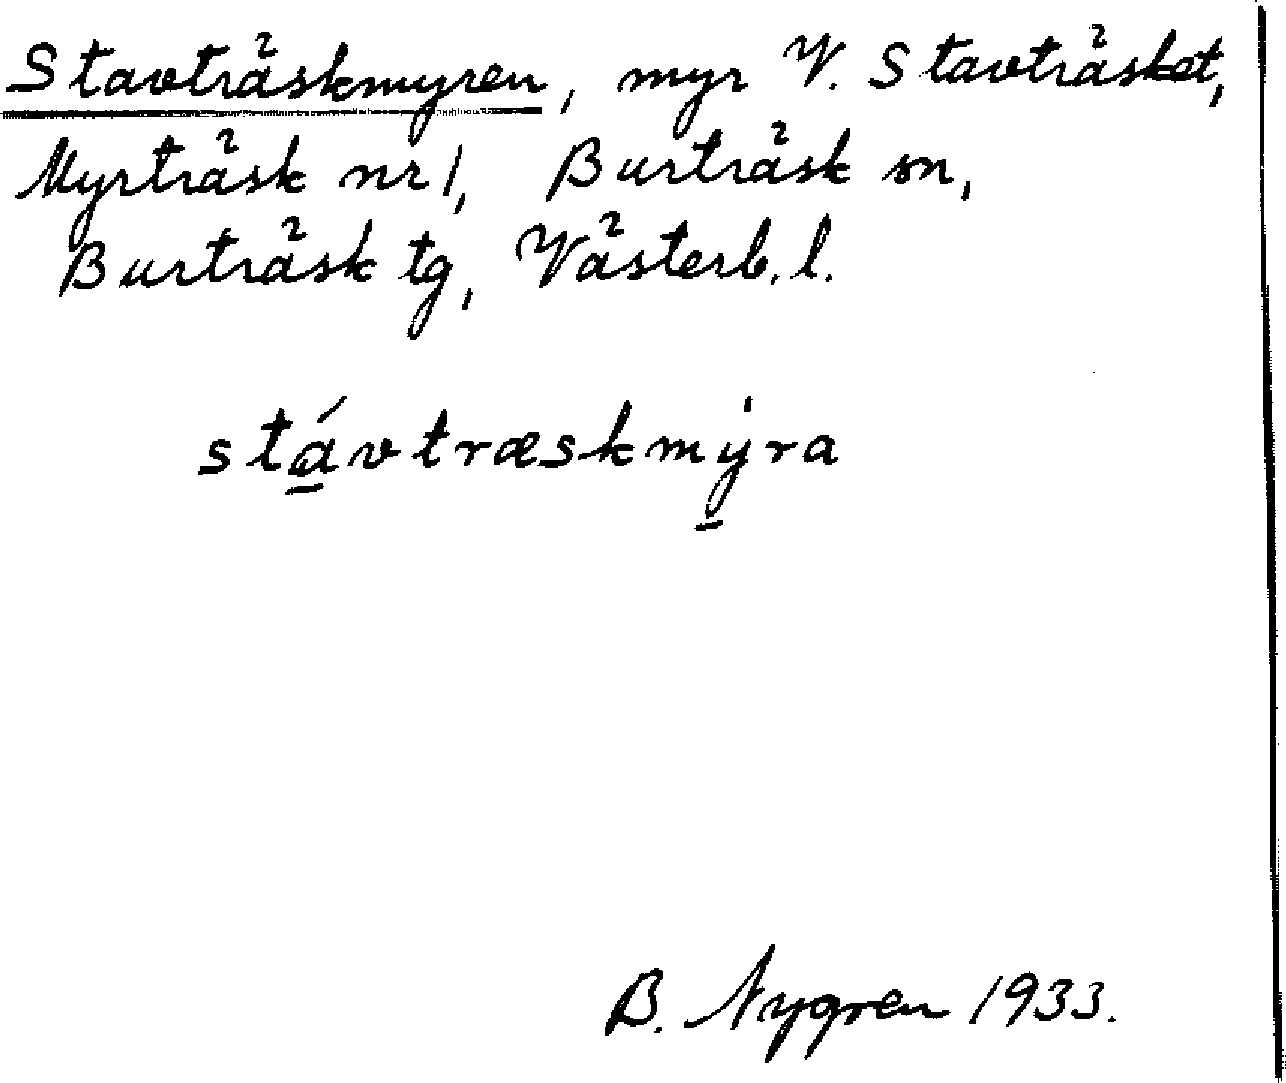 Stavträskmyren, myr V. Stavträsket,
Myrträsk nr 1, Burträsk sn,
Burträsk tg, Västerb. l.
stá̲vtræskmý̲ra
B. Nygren 1933.